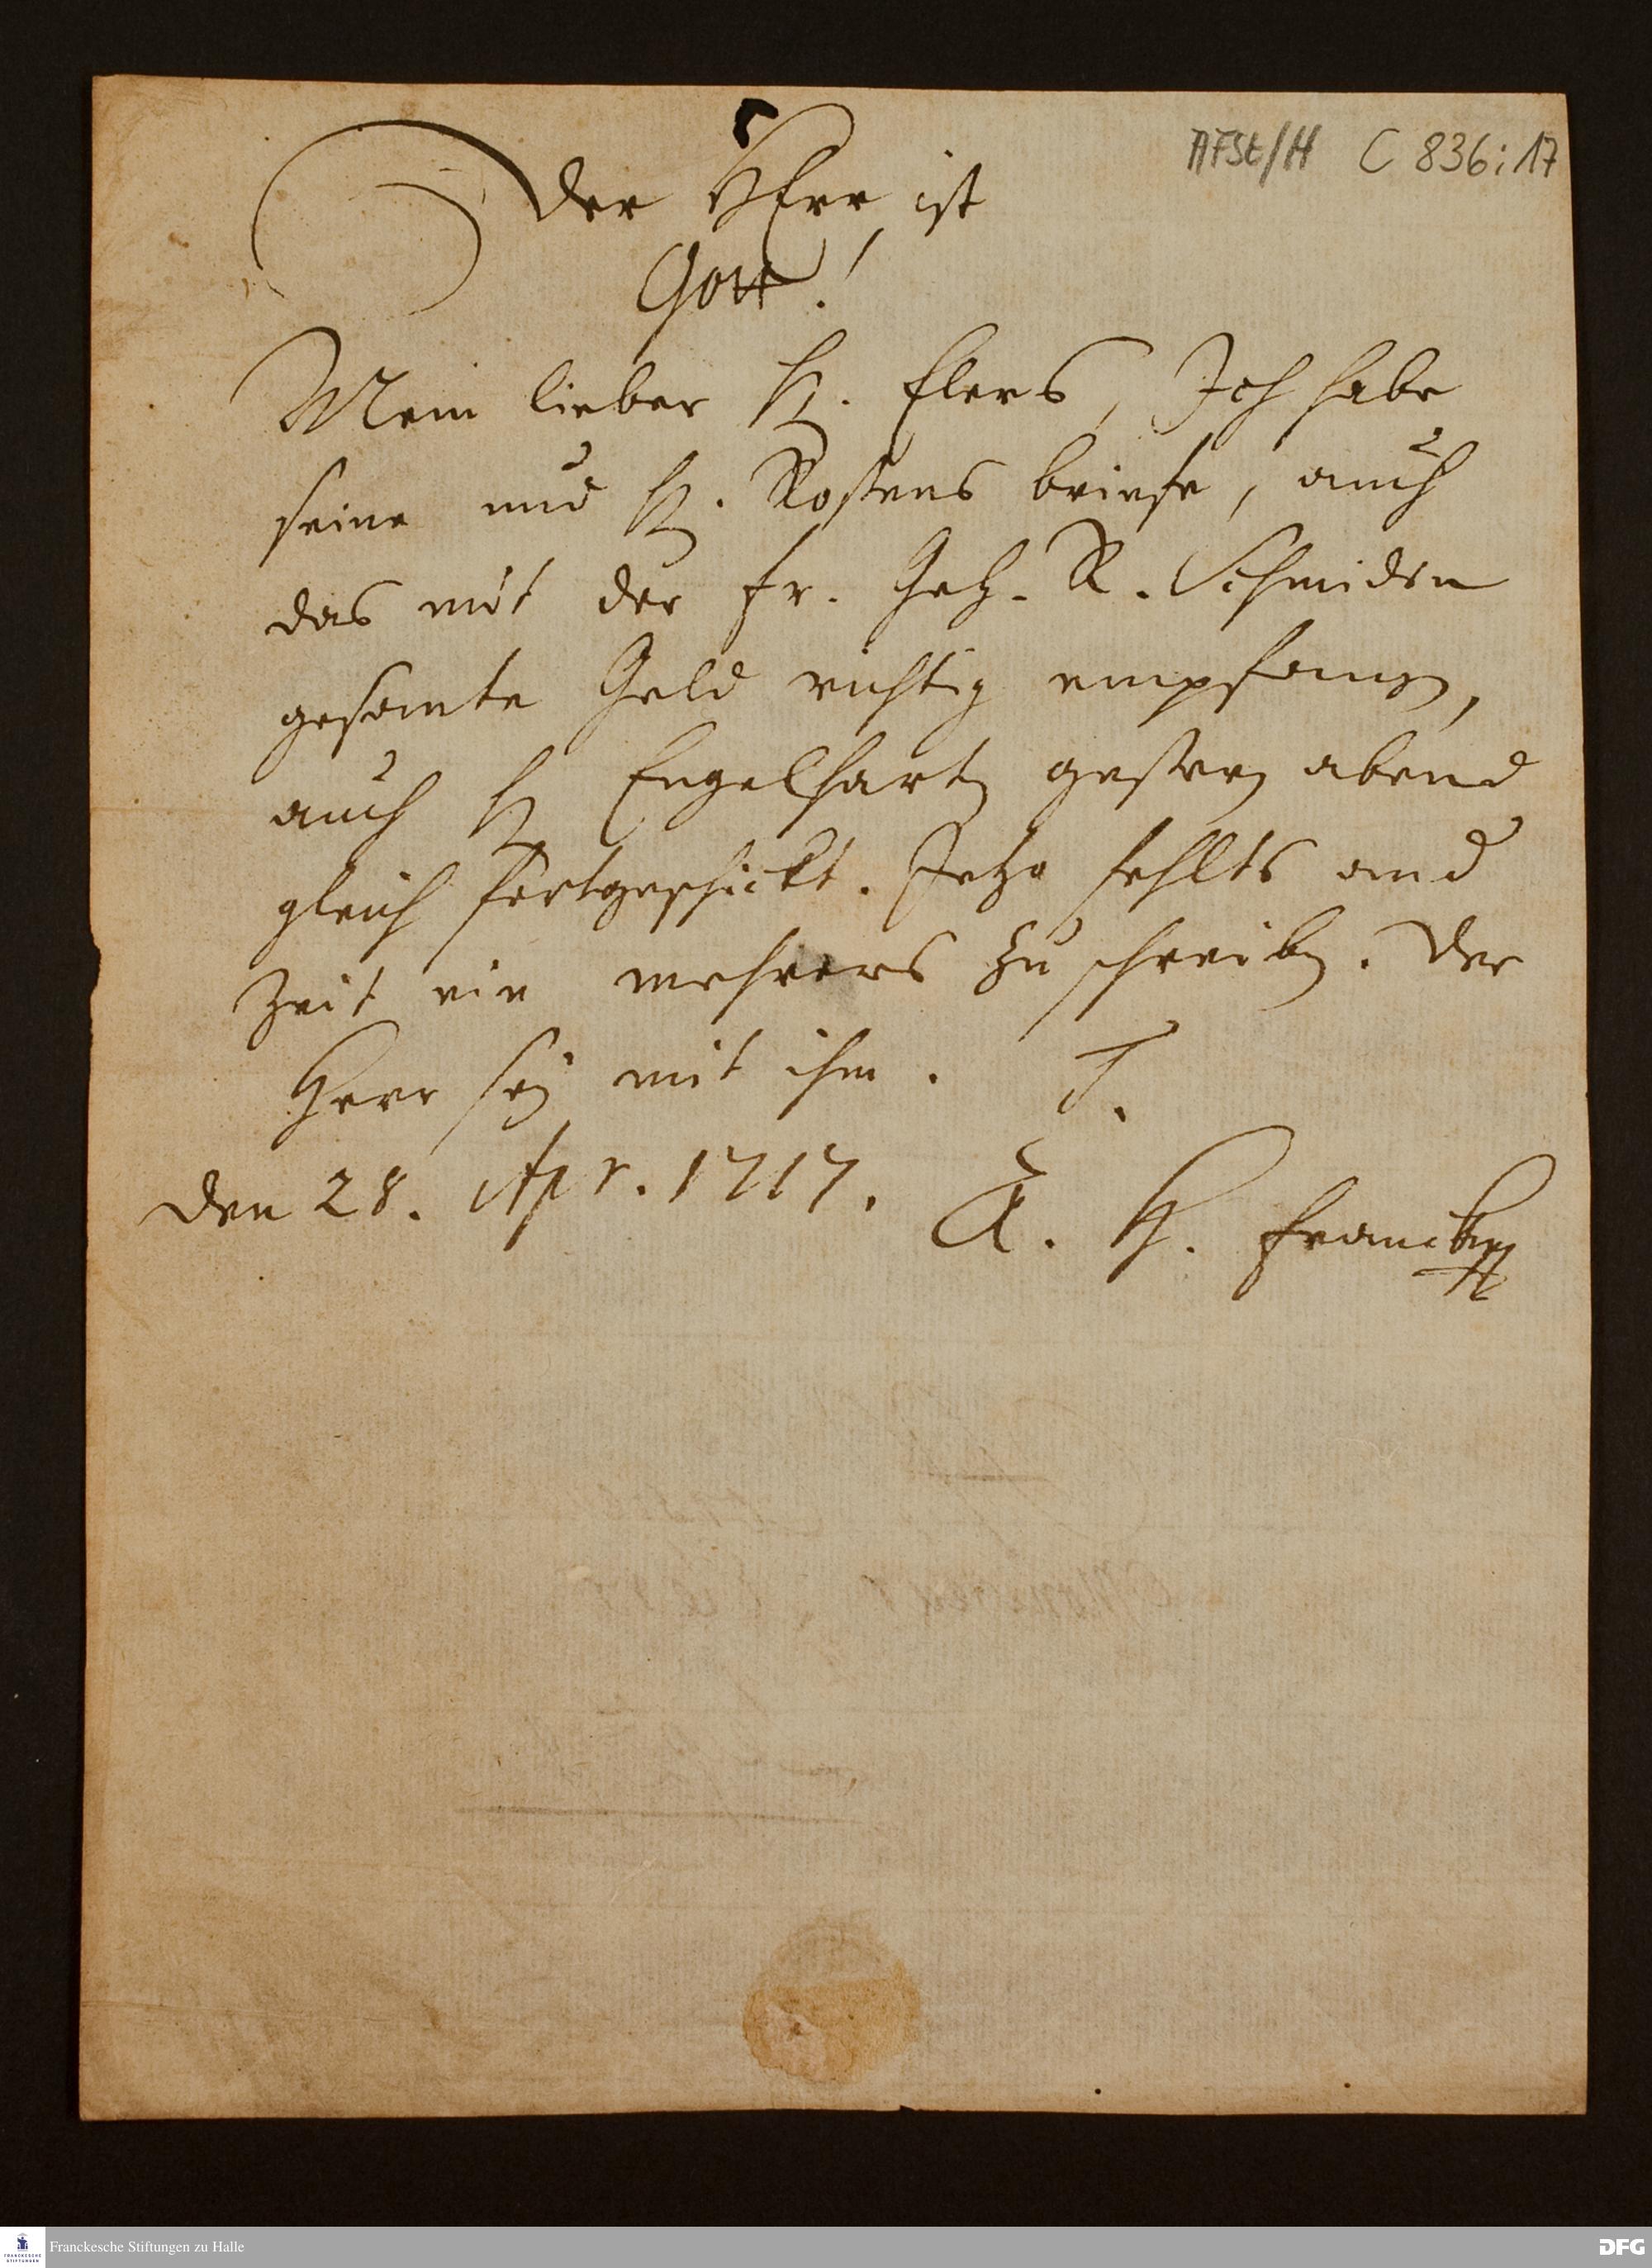 AFSt/H C 836:17
Der HErr ist
Gott!
Mein lieber H. Elers, Ich habe
seine und H. Rostens briefe, auch
das mit der Fr. Geh. R. Schmiden
gesamte Geld richtig empfangen,
auch H Engelhart gestern abend
gleich fortgeschickt. Jetzo fehlts and
Zeit ein mehrers zu schreiben. Der
Herr sey mit ihm.
den 28. Apr. 1717. A. H. Francke
Franckesche Stiftungen zu Halle
FRANCKESCHE STIFTUNGEN
DFG